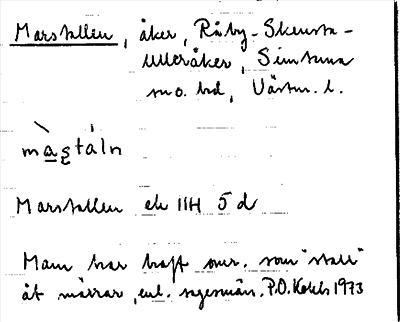 Marstallen, åker, Råby-Skensta-
Ulleråker, Simtuna
sn o. hd, Västm. l.
màstáln
Marstallen ek IIH 5 d
Man har haft omr. som "stall"
åt märrar, enl. sagesmän. P.O. Kohls 1973